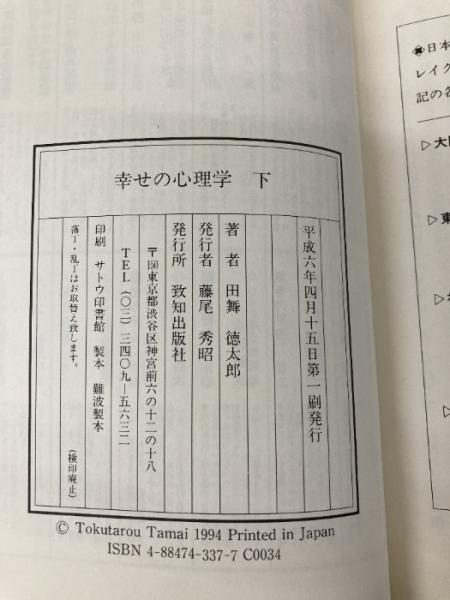 幸せの心理学　下
平成六年四月十五日第一刷発行
著　者　田舞　徳太郎
発行者　藤尾　秀昭
発行所　致知出版社
〒150東京都渋谷区神宮前六の十二の十八
TEL（〇三）三四〇九―五六三二
印刷　サトウ印書館　製本　難波製本
落丁・乱丁はお取替え致します。
（検印廃止）
© Tokutarou Tamai 1994 Printed in Japan
ISBN 4-88474-337-7 C0034
※日本
レイク
記の名
▷大
▷東
▷
▷